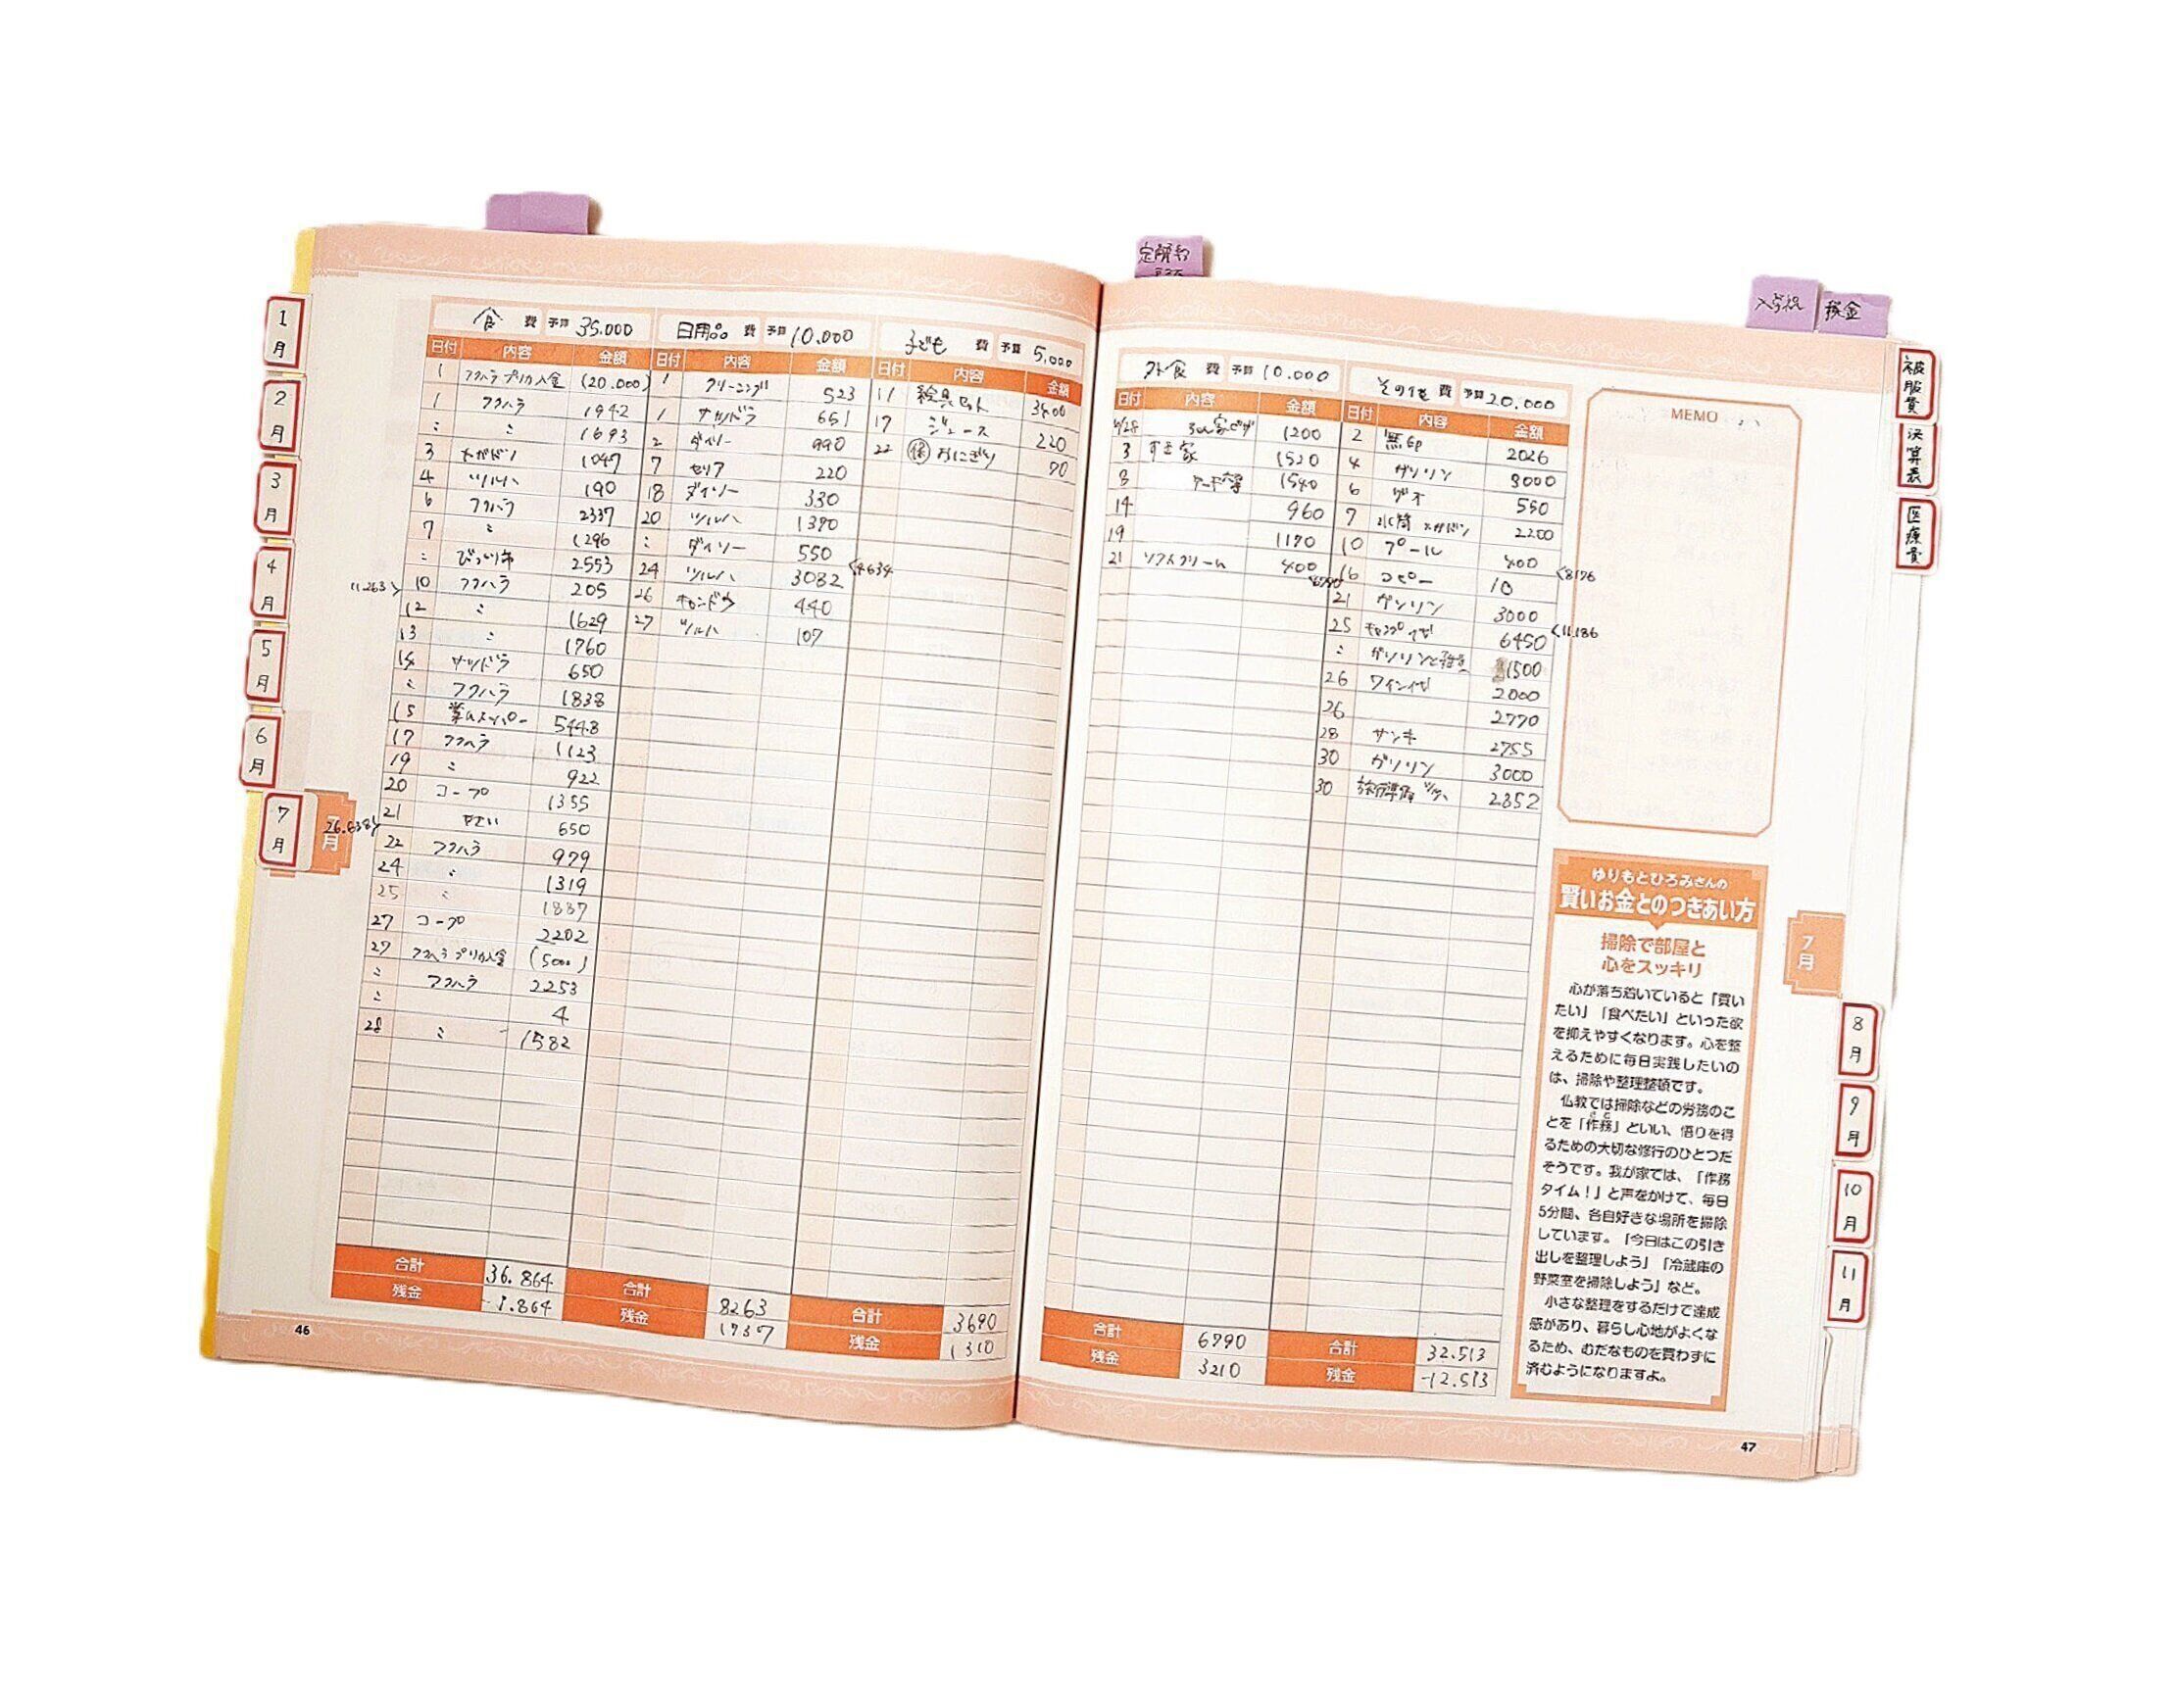 定額
入学祝
税金
1月
2月
3月
4月
5月
6月
7月
食 費 予算 35.000
日付 内容 金額
1 フクハラ プリカ入金 (20.000)
1 フクハラ 1942
〃 〃 1693
3 メガドン 1047
4 ツルハ 190
6 フクハラ 2337
7 〃 1296
〃 びっくり市 2553
11.263
10 フクハラ 205
12 〃 1629
13 〃 1760
14 サツドラ 650
〃 フクハラ 1838
15 業ムスーパー 5448
17 フクハラ 1123
19 〃 922
20 コープ 1355
26.838
21 やさい 650
22 フクハラ 979
24 〃 1319
25 〃 1887
27 コープ 2202
27 フクハラ プリカ入金 (5000)
〃 フクハラ 2253
〃 4
28 〃 1582
合計 36.864
残金 -1.864
日用品 費 予算 10.000
日付 内容 金額
1 クリーニング 523
1 サツドラ 651
2 ダイソー 990
7 セリア 220
18 ダイソー 330
20 ツルハ 1370
〃 ダイソー 550
4634
24 ツルハ 3082
26 キャンドウ 440
27 ツルハ 107
合計 8263
残金 1737
子ども 費 予算 5.000
日付 内容 金額
11 絵具セット 3400
17 ジュース 220
22 おにぎり 70
合計 3690
残金 1310
46
外食 費 予算 10.000
日付 内容 金額
6/28 1200
3 すき家 1520
8 1540
14 960
19 1170
21 ソフトクリーム 400
6790
合計 6790
残金 3210
その他 費 予算 20.000
日付 内容 金額
2 無印 2026
4 ガソリン 3000
6 ゲオ 550
7 水筒 メガドン 2200
10 プール 400
8176
16 コピー 10
21 ガソリン 3000
11.186
25 キャンプ代 6450
〃 ガソリンと 1500
26 ワイン代 2000
26 2770
28 サンキ 2755
30 ガソリン 3000
30 旅行準備 ツルハ 2852
合計 32.513
残金 -12.513
MEMO
ゆりもとひろみさんの
賢いお金とのつきあい方
掃除で部屋と
心をスッキリ
心が落ち着いていると「買い
たい」「食べたい」といった欲
を抑えやすくなります。心を整
えるために毎日実践したいの
は、掃除や整理整頓です。
仏教では掃除などの労務のこ
とを「作務」といい、悟りを得
るための大切な修行のひとつだ
そうです。我が家では、「作務
タイム！」と声をかけて、毎日
5分間、各自好きな場所を掃除
しています。「今日はこの引き
出しを整理しよう」「冷蔵庫の
野菜室を掃除しよう」など。
小さな整理をするだけで達成
感があり、暮らし心地がよくな
るため、むだなものを買わずに
済むようになりますよ。
47
被服費
決算表
医療費
7月
8月
9月
10月
11月